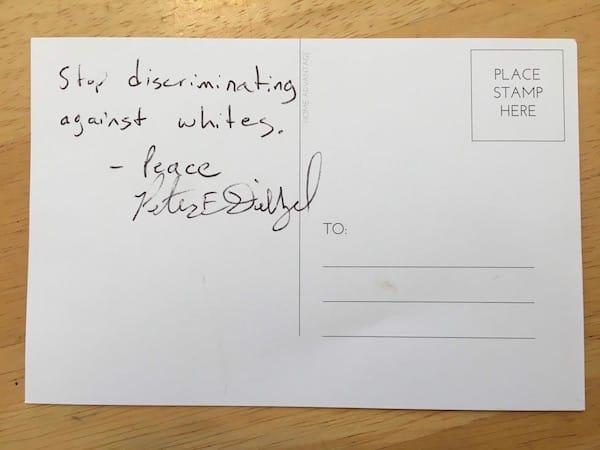 Stop discriminating
against whites.
- Peace
Peter E
HOME ADVANTAGE
PLACE
STAMP
HERE
TO: